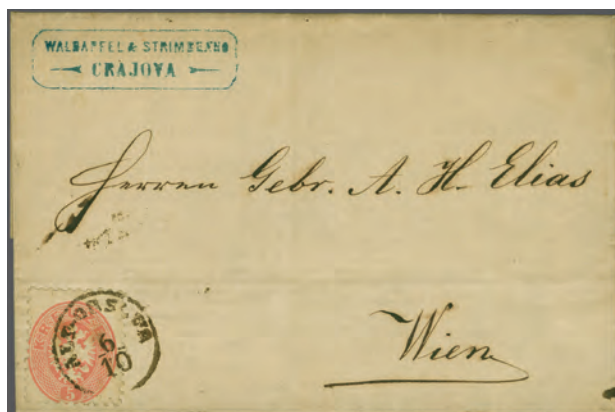 WALDAPFEL & STRIMBEANO
CRAJOVA
Herren Gebr. A. H. Elias
Wien
ALT-ORSOVA
6/10
5